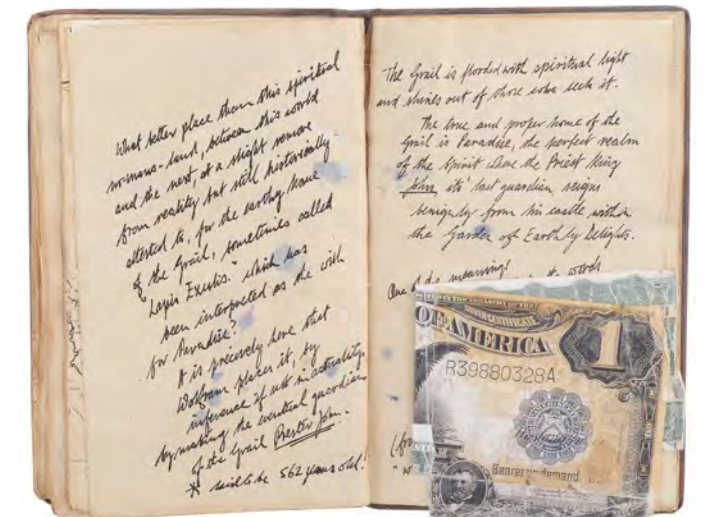 What better place than this spiritual
no-mans-land, between this world
and the next, at a slight remove
from reality but still historically
attested to, for the earthy home
of the Grail, sometimes called
"Lapis Exultis." which has
been interpreted as the wish
for Paradise?
It is precisely here that
Wolfram places it, by
inference if not in actuality
by making the eventual guardian
of the Grail Prester John.
* said to be 562 years old!
The Grail is flooded with spiritual light
and shines out of those who seek it.
The true and proper home of the
Grail is Paradise, the perfect realm
of the Spirit where the Priest King
John, its' last guardian, reigns
benignly from his castle within
the Garden of Earthly Delights.
One of the meaning!
it words
SILVER CERTIFICATE
OF AMERICA
1
R39880328A
Bearer on demand